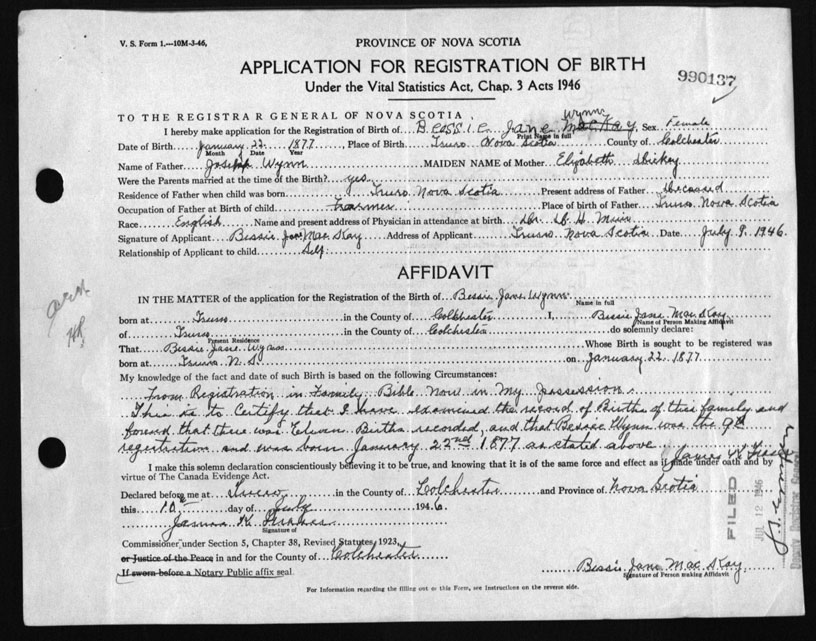 V. S. Form 1.—10M-3-46,
PROVINCE OF NOVA SCOTIA
APPLICATION FOR REGISTRATION OF BIRTH
990137
Under the Vital Statistics Act, Chap. 3 Acts 1946
TO THE REGISTRAR GENERAL OF NOVA SCOTIA
Wynn
I hereby make application for the Registration of Birth of Bessie Jane MacKay, Sex Female
Print Name in full
Date of Birth January 22 1877 Place of Birth Truro Nova Scotia County of Colchester
Month Date Year
Name of Father Joseph Wynn MAIDEN NAME of Mother Elizabeth Dickey
Were the Parents married at the time of the Birth? yes
Residence of Father when child was born Truro Nova Scotia Present address of Father Deceased
Occupation of Father at Birth of child Farmer Place of birth of Father Truro, Nova Scotia
Race English Name and present address of Physician in attendance at birth Dr. D. H. Muir
Signature of Applicant Bessie Jane MacKay Address of Applicant Truro Nova Scotia Date July 9, 1946.
Relationship of Applicant to child Self
AFFIDAVIT
IN THE MATTER of the application for the Registration of the Birth of Bessie Jane Wynn
Name in full
born at Truro in the County of Colchester I, Bessie Jane MacKay
Name of Person Making Affidavit
of Truro in the County of Colchester do solemnly declare:
Present Residence
That Bessie Jane Wynn Whose Birth is sought to be registered was
born at Truro N. S. on January 22 1877
My knowledge of the fact and date of such Birth is based on the following Circumstances:
From Registration in Family Bible Now in My Possession.
This is to Certify that I have examined the record of Births of this family and
found that there was Eleven Births recorded, and that Bessie Wynn was the 9th
registration and was born January 22nd 1877 as stated above James K
I make this solemn declaration conscientiously believing it to be true, and knowing that it is of the same force and effect as if made under oath and by
virtue of The Canada Evidence Act.
Declared before me at Truro in the County of Colchester and Province of Nova Scotia
this 10th day of July 1946
James K
Signature of
Commissioner under Section 5, Chapter 38, Revised Statutes 1923,
or Justice of the Peace in and for the County of Colchester
If sworn before a Notary Public affix seal.
Bessie Jane MacKay
Signature of Person making Affidavit
For Information regarding the filling out of this Form, see Instructions on the reverse side.
FILED
JUL 12 1946
Deputy Registrar General